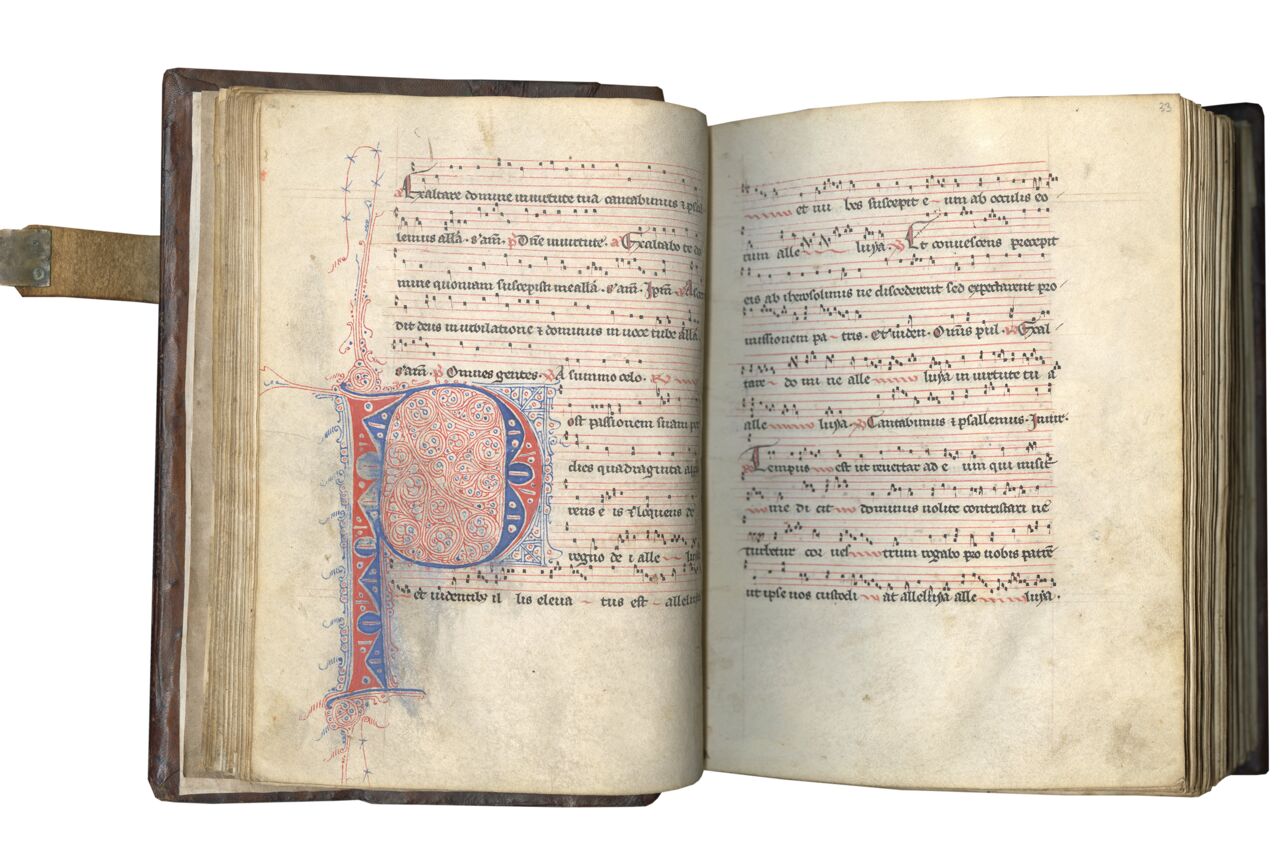 Exaltare domine in uirtute tua cantabimus ⁊ psal
lemus alla. s'am. ps Dne in uirtute. a Exaltabo te do
mine quoniam suscepisti me alla. s'am. Ipm. a Ascen
dit deus in iubilatione ⁊ dominus in uoce tube alla.
s'am. ps Omnes gentes. A summo celo.
Post passionem suam per
dies quadraginta
rens e is ⁊ loquens de
regno de i alle luia
et uidentib; il lis eleua tus est alleluya
33
et nu bes suscepit e um ab occulis eo
rum alle luya. Et conuescens precepit
eis ab iherosolimis ne discederent sed expectarent pro
missionem pa tris. Et uiden. Omis pul. Exal
tare do mi ne alle luya in uirtute tu a
alle luya. Cantabimus ⁊ psallemus. In uir.
Tempus est ut reuertar ad e um qui misit
me di cit dominus nolite contristari nec
turbetur cor ues trum rogabo pro uobis patrem
ut ipse uos custodi at alleluya alle luya.